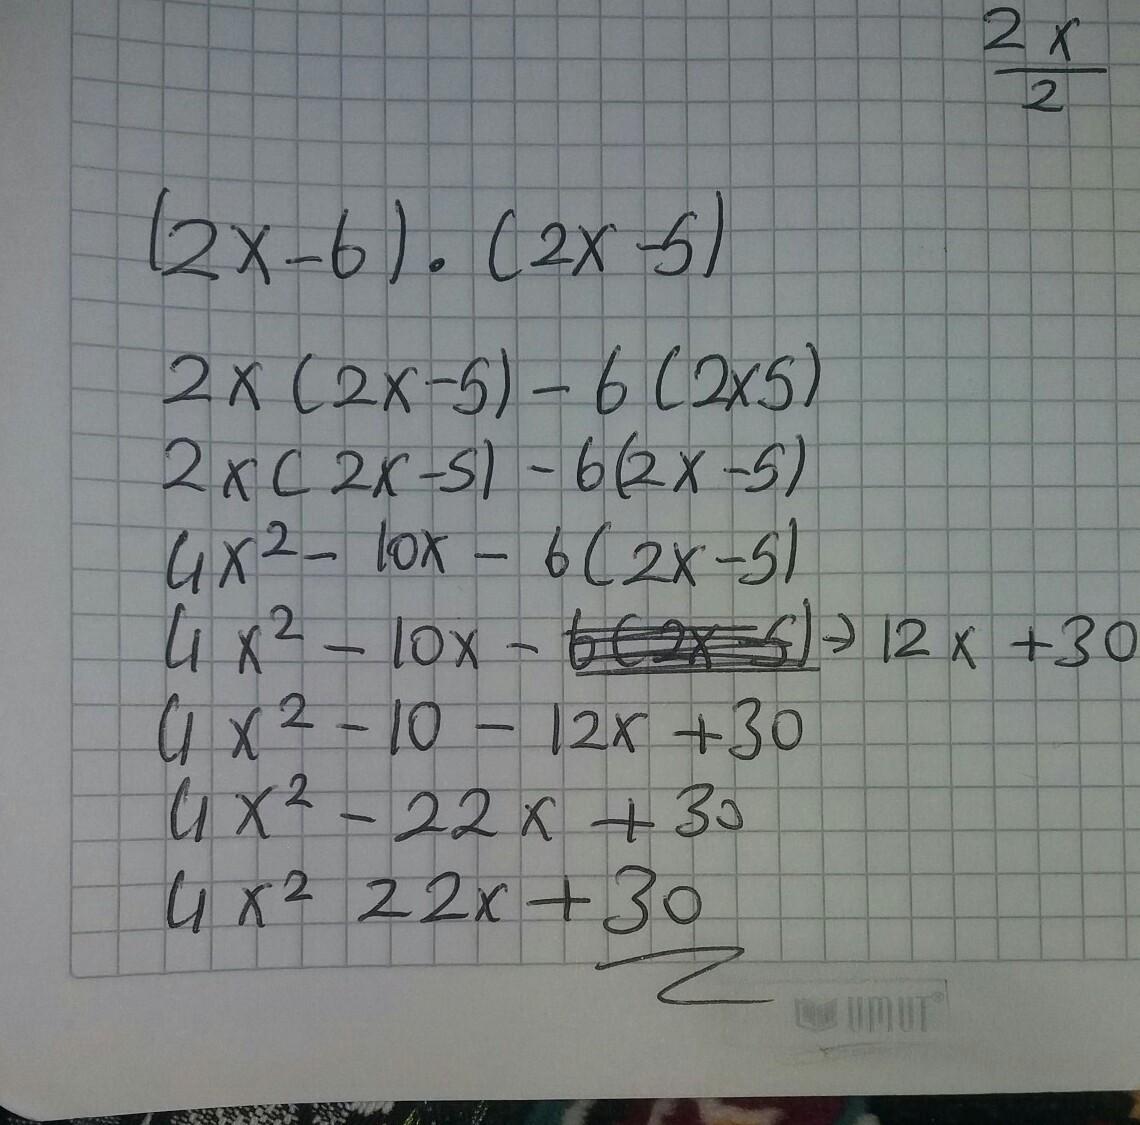 2x
2
(2x-6).(2x-5)
2x(2x-5)-6(2x5)
2x(2x-5)-6(2x-5)
4x²-10x-6(2x-5)
4x²-10x-6(2x-5)→12x+30
4x²-10-12x+30
4x²-22x+30
4x² 22x+30
UMUT®